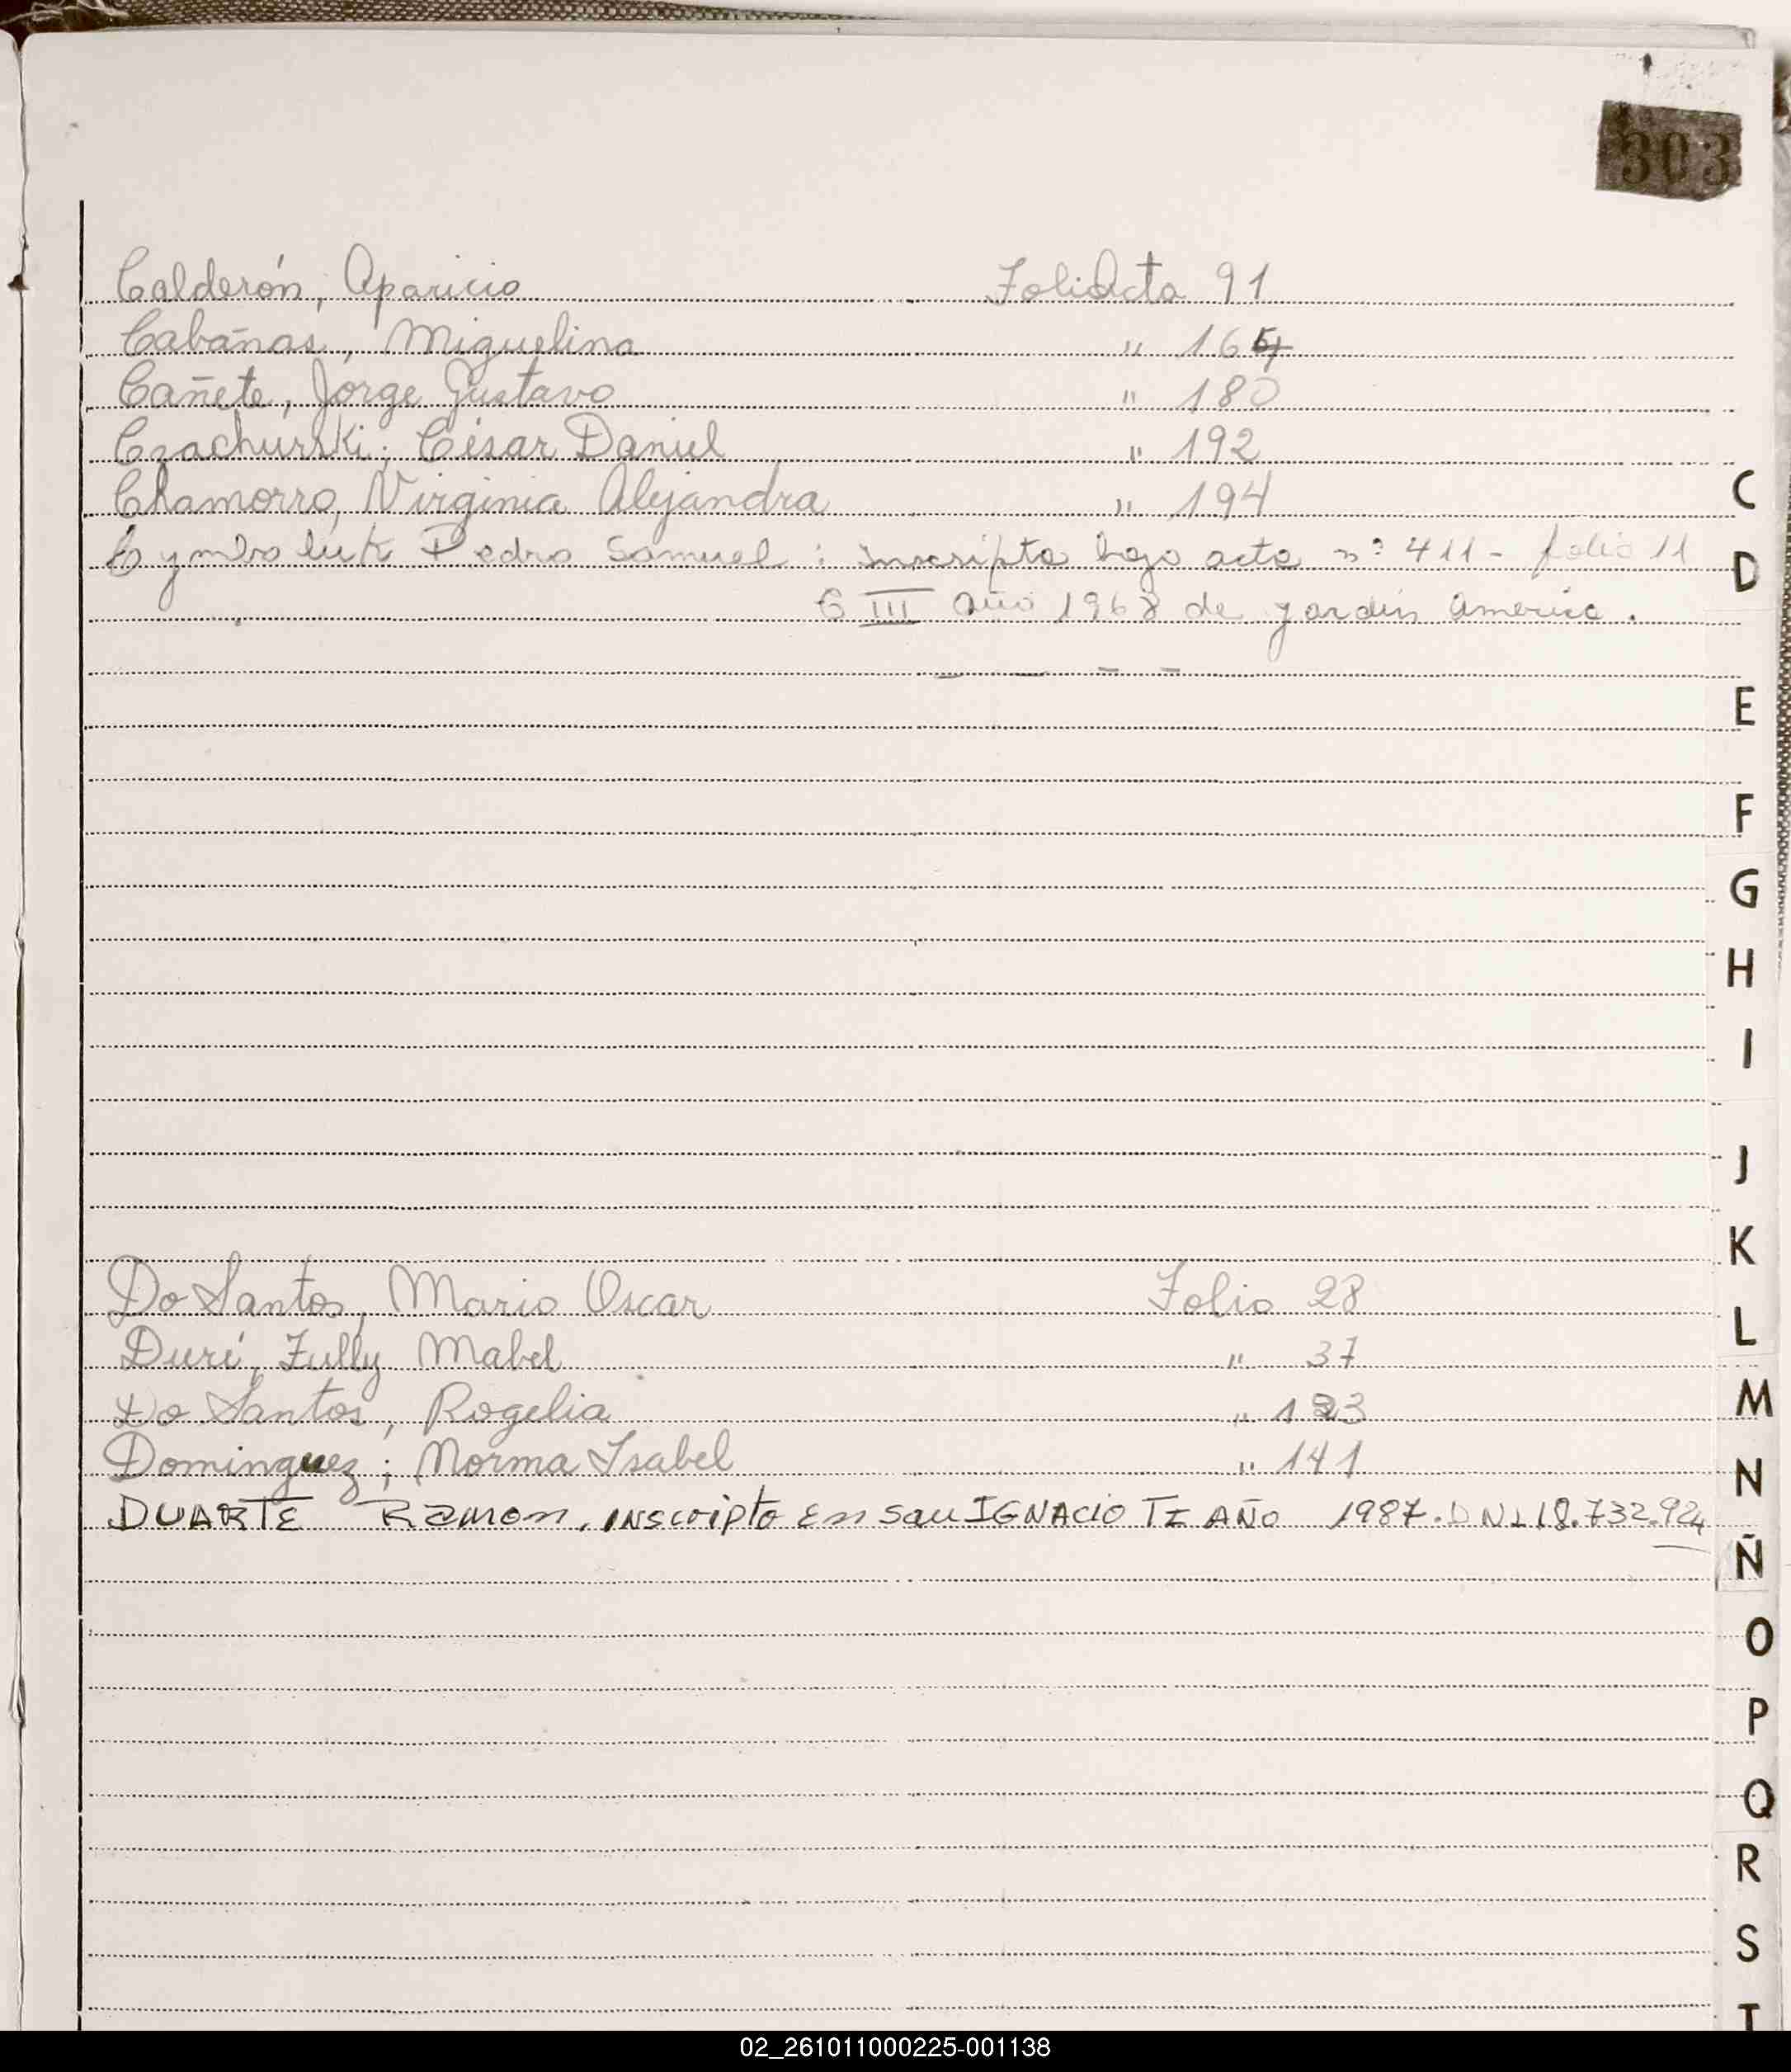 303
Calderón, Aparicio Folio Acta 91
Cabañas, Miguelina " 164
Cañete, Jorge Gustavo " 180
Czachurski; César Daniel " 192
Chamorro, Virginia Alejandra " 194
Cymbaluk Pedro Samuel : inscripto bajo acta nº 411 - folio 11
III año 1968 de jardin america.
Do Santos, Mario Oscar Folio 28
Duré, Zully Mabel " 37
Do Santos, Rogelia " 123
Dominguez; Norma Isabel " 141
DUARTE Ramon, INScripto En San IGNACIO TI AÑO 1987. DNI 18.732.924
C
D
E
F
G
H
I
J
K
L
M
N
Ñ
O
P
Q
R
S
T
02_261011000225-001138